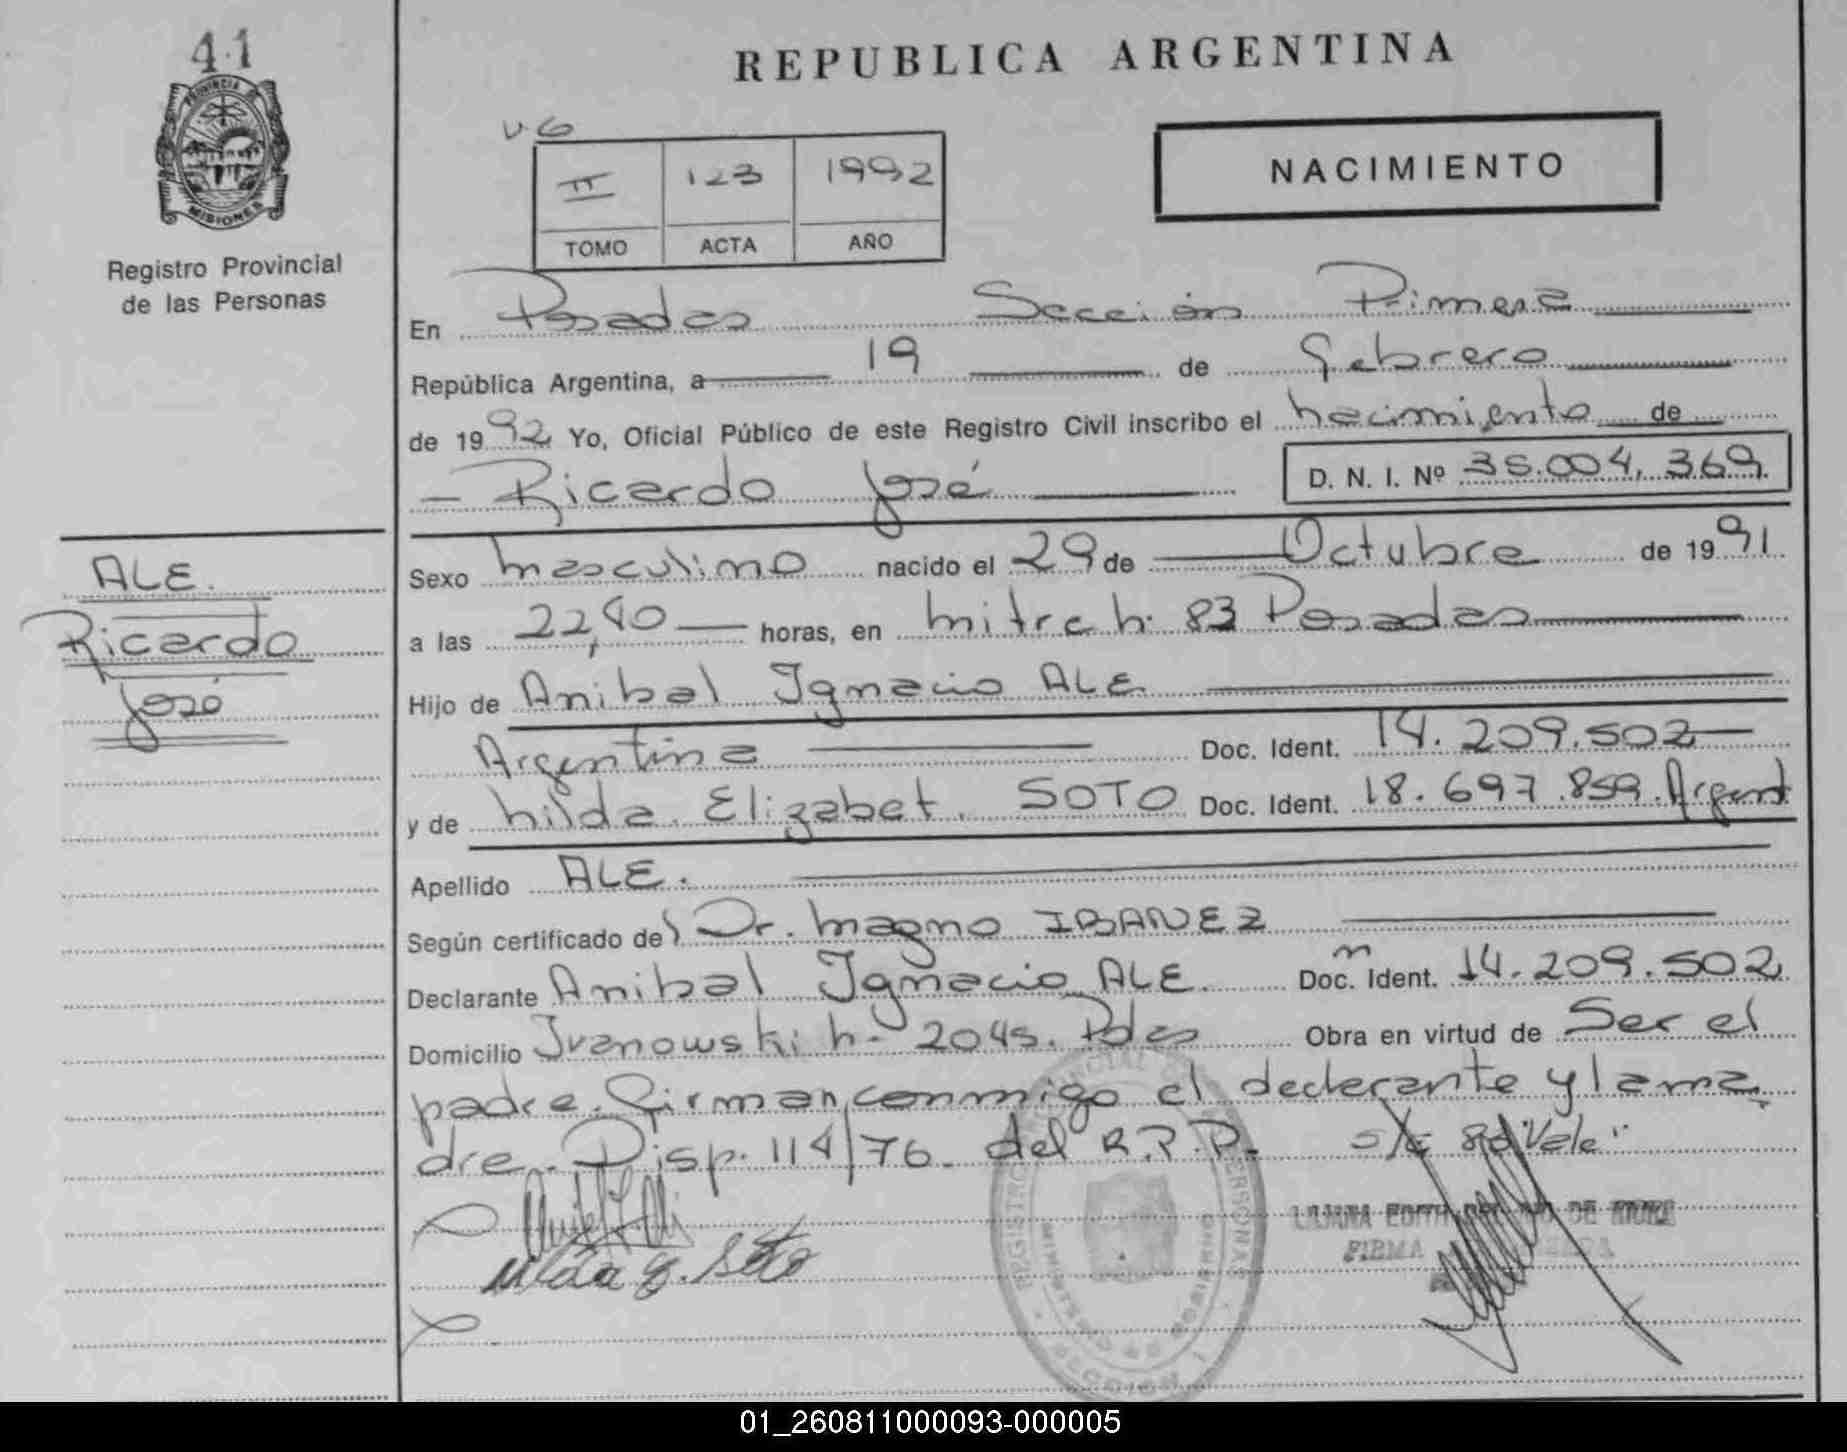 41
PROVINCIA DE
MISIONES
Registro Provincial
de las Personas
REPUBLICA ARGENTINA
V.6
II 123 1992
TOMO ACTA AÑO
NACIMIENTO
En Posadas Sección Primera
República Argentina, a 19 de Febrero
de 1992 Yo, Oficial Público de este Registro Civil inscribo el nacimiento de
Ricardo José D. N. I. Nº 36.004.369
ALE.
Ricardo
José
Sexo masculino nacido el 29 de Octubre de 1991
a las 22,40 horas, en mitre n. 83 Posadas
Hijo de Anibal Ignacio ALE
Argentina Doc. Ident. 14.209.502
y de hilda Elizabet. SOTO Doc. Ident. 18.697.859. Argent
Apellido ALE.
Según certificado del Dr. magno IBANEZ
Declarante Anibal Ignacio ALE. Doc. Ident. 14.209.502
Domicilio Ivanowski n- 2045. Pdas Obra en virtud de Ser el
padre. Firman conmigo el declarante y la ma
dre. Disp. 114/76. del R.P.P. s/c 80 "Vale"
Hilda E. Soto
EDITH DE
FIRMA
01_260811000093-000005